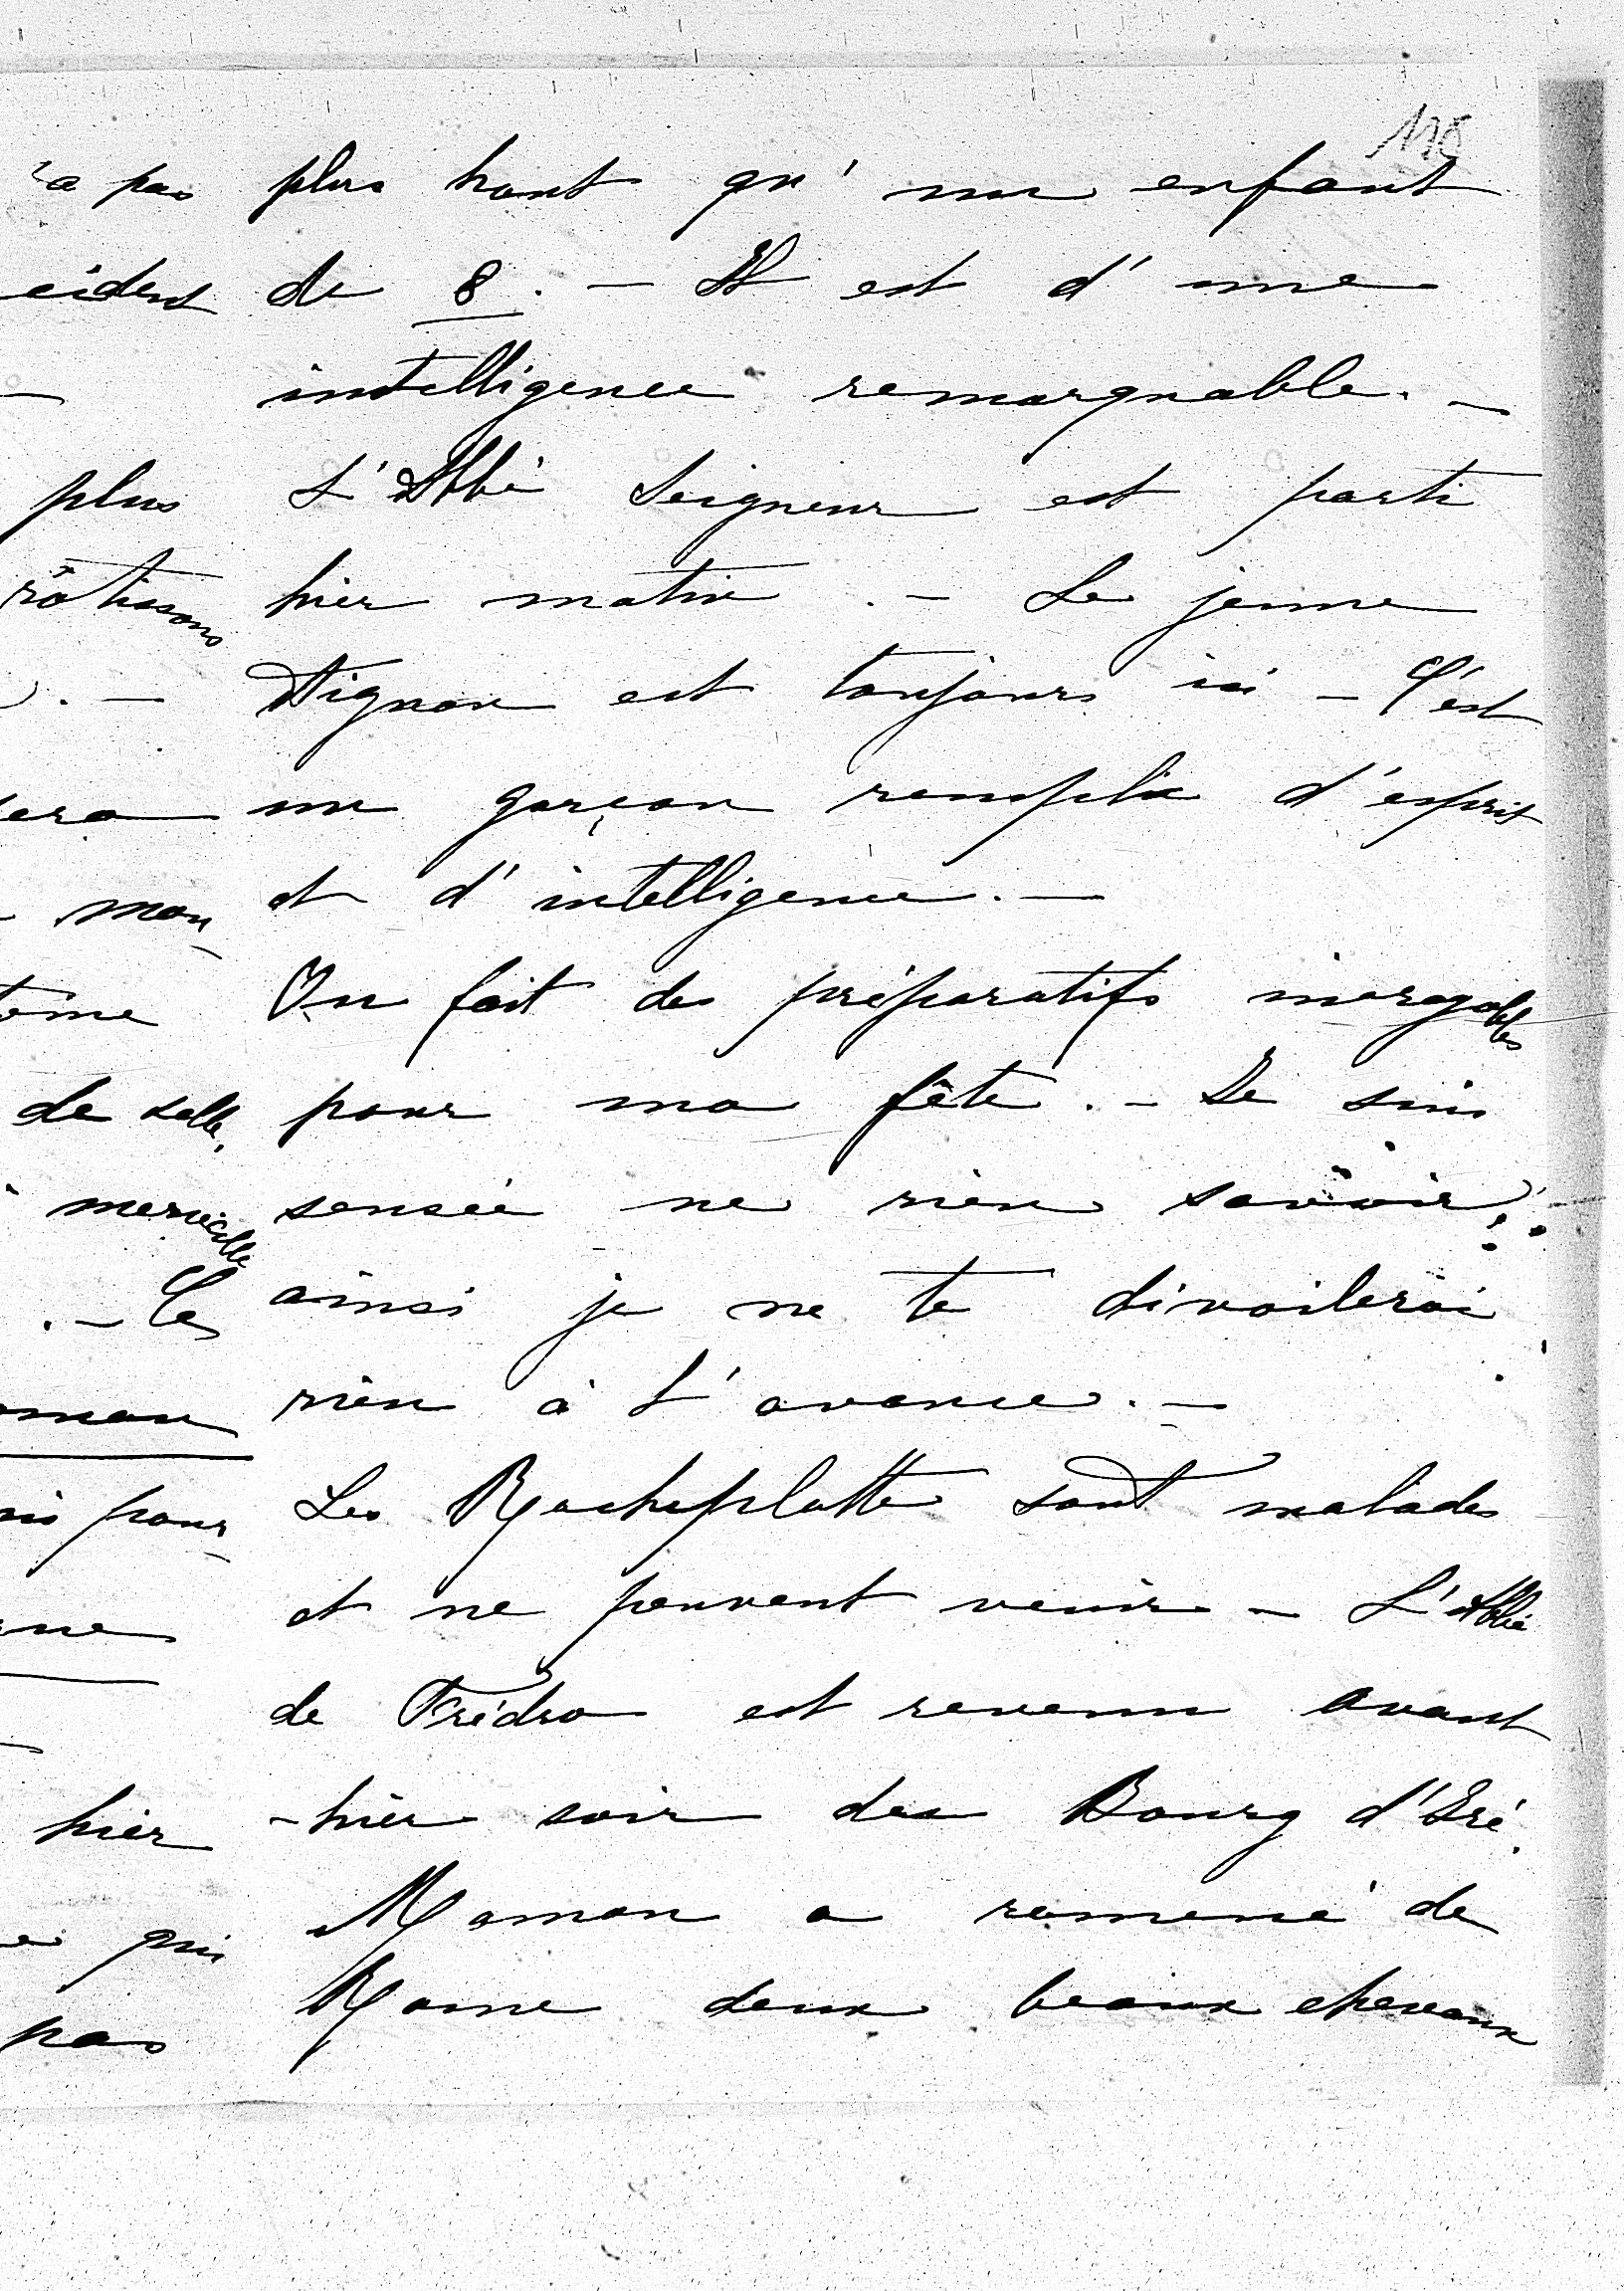 118
plus haut qu'un enfant
de 8. — Il est d'une
intelligence remarquable. —
L'Abbé Seigneur est parti
hier matin. — Le jeune
Dignon est toujours ici — C'est
un garçon rempli d'esprit
et d'intelligence. —
On fait des préparatifs
pour ma fête. — Je suis
sensée ne rien savoir!
ainsi je ne te dévoilerai
rien à l'avance. —
Les Rocheplatte sont malades
et ne peuvent venir — L'Abbé
de est revenu avant
-hier soir des Bourg d'Iré.
Maman a ramené de
Rome deux beaux chevaux
a pas
cident
—
plus
rôtissons
. —
era
mon
tôme
de selle.
merveille
. — Ces
man
pour
ne
hier
qui
pas